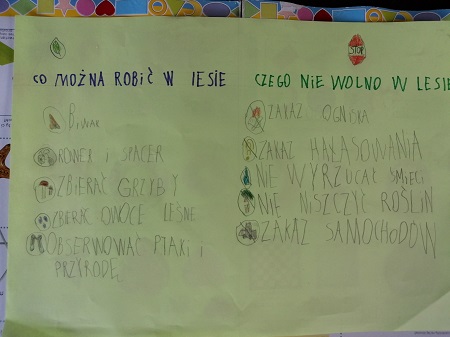 STOP
CO MOŻNA ROBIĆ W lESIE
BIWAK
ROWER I SPACER
ZBIERAĆ GRZYBY
ZBIERAĆ OWOCE LEŚNE
OBSERWOWAĆ PTAKI i
PRZYRODĘ
CZEGO NIE WOLNO W LESIE
ZAKAZ OGNISKA
ZAKAZ HAŁASOWANIA
NIE WYRZUCAĆ ŚMIECI
NIE NISZCZYĆ ROŚLIN
ZAKAZ SAMOCHODÓW